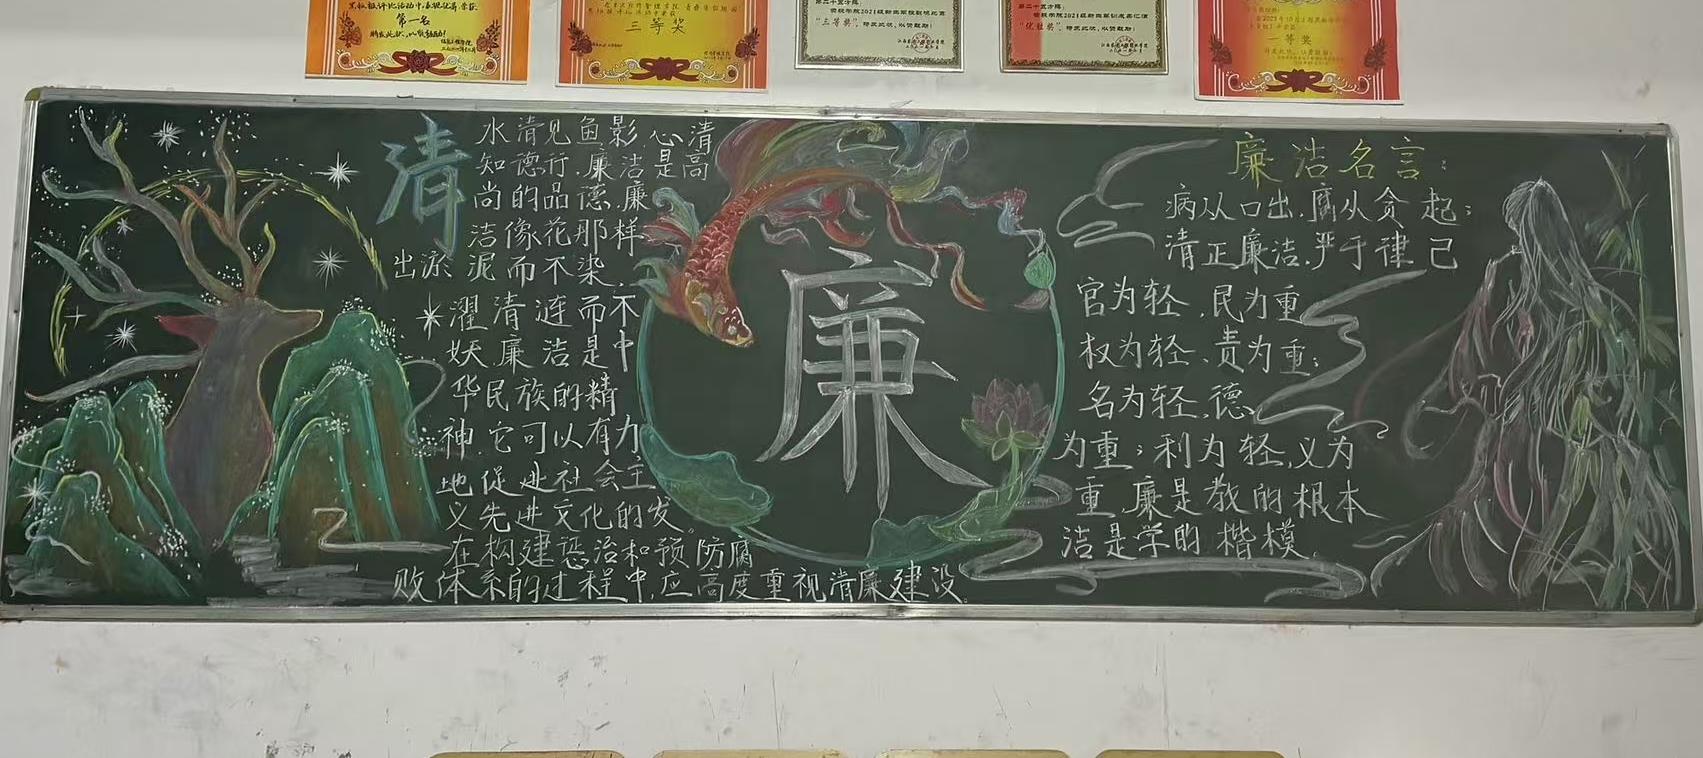 第一名
三等奖
"三等奖"
一等奖
清
水清见鱼影,心清
知德行.廉洁是高
尚的品德.廉
洁像花那样
出淤泥而不染,
濯清涟而不
妖廉洁是中
华民族的精
神.它可以有力
地促进社会主
义先进文化的发。
在构建惩治和预防腐
败体系的过程中,应高度重视清廉建设。
廉
廉洁名言:
病从口出.腐从贪起;
清正廉洁.严于律己
官为轻.民为重
权为轻、责为重;
名为轻.德
为重;利为轻.义为
重 廉是教的根本
洁是学的楷模.